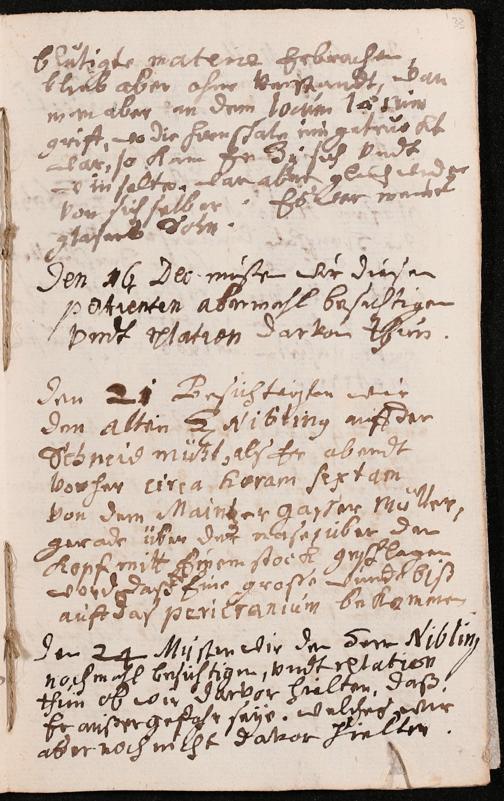 33
blutigte materie Erbrochen,
blieb aber ohne Verstandt, wan
man aber an dem locum læsum
grift, wo die hirnschale eingetruckt
war, so kam Er Zu sich undt
winselte, war aber gleich wider
von sich selber. Es war
glasers Sohn.
Den 16 Dec musten wir diesen
patienten abermahl besichtigen
undt relation darvon thun.
Den 21 Besichtigten wir
den alten Nibling auf der
Schneid mühl, als Er abendt
vorher circa horam sextam
von dem Maintzer gasser Müller,
gerade über der nasen über den
Kopf mitt Einem stock geschlagen
word, daß Er Eine grosse wunde biß
auff das pericranium bekommen
Den 24 Musten wir den Nibling
nochmahl besichtigen, undt relation
thun ob wir darvor hielten, daß
Er ausser gefahr seye. welches wir
aber noch nicht davor hielten.